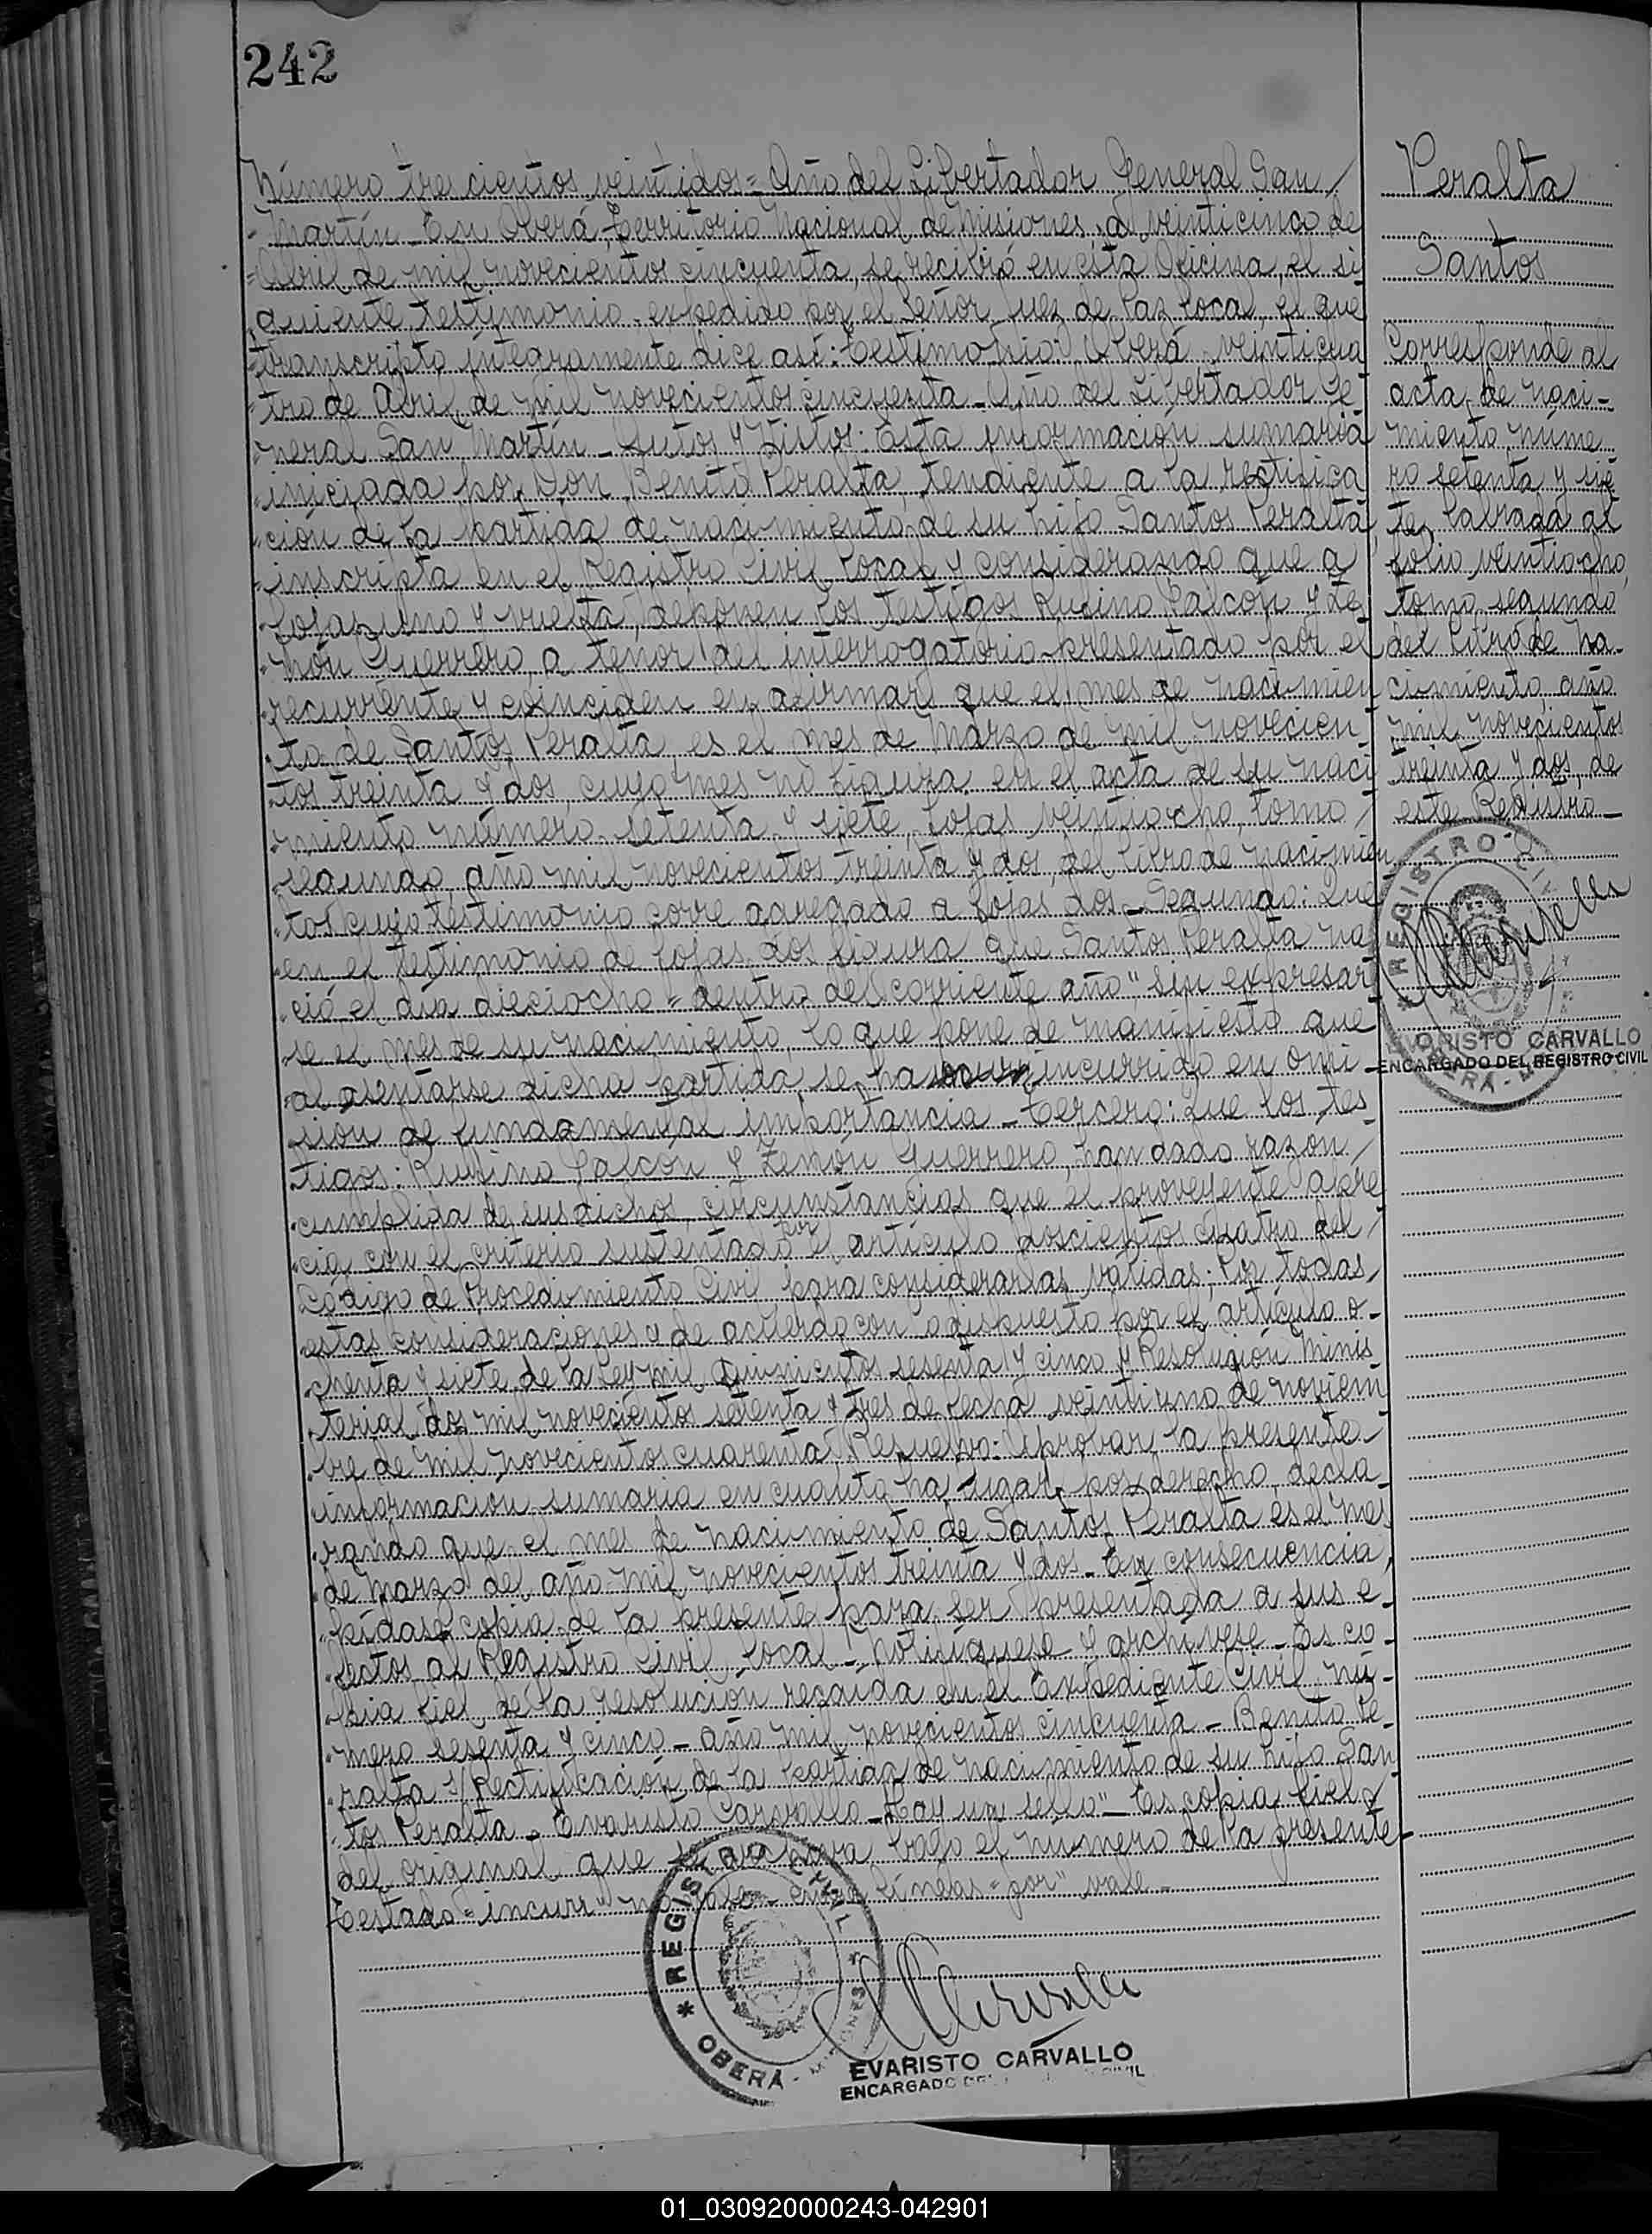 242
Número trecientos veintidos = Año del Libertador General San /
Martín _ En Oberá, Territorio Nacional de Misiones, a veinticinco de
Abril de mil novecientos cincuenta, se recibió en esta Oficina, el si
guiente testimonio expedido por el Señor Juez de Paz local, el que
transcripto íntegramente dice así: Testimonio: Oberá, veinticua
tro de Abril de mil novecientos cincuenta _ Año del Libertador Ge
neral San Martín _ Autos y Vistos: Esta información sumaria
iniciada por Don Benito Peralta, tendiente a la rectifica
ción de la partida de nacimiento de su hijo Santos Peralta
inscripta en el Registro Civil local y considerando que a
fojas uno y vuelta, deponen los testigos Rufino Falcón y Ze
nón Guerrero, a tenor del interrogatorio presentado por el
recurrente y coinciden en afirmar que el mes de nacimien
to de Santos Peralta, es el mes de Marzo de mil novecien
tos treinta y dos, cuyo mes no figura en el acta de su naci
miento número setenta y siete, fojas veintiocho, tomo /
segundo, año mil novecientos treinta y dos, del libro de nacimien
tos cuyo testimonio corre agregado a fojas dos _ Segundo: Que
en el testimonio de fojas dos figura que Santos Peralta na
ció el día dieciocho = dentro del corriente año" sin expresar
se el mes de su nacimiento, lo que pone de manifiesto que
al asentarse dicha partida, se ha incurrido en omi
sión de fundamental importancia _ Tercero: Que los tes
tigos: Rufino Falcón y Zenón Guerrero, han dado razón /
cumplida de sus dichos, circunstancias que el proveyente apre
cia con el criterio sustentado por el artículo doscientos cuatro del /
Código de Procedimiento Civil para considerarlas validas; Por todas
estas consideraciones y de acuerdo con lo dispuesto por el artículo o-
chenta y siete de la Ley mil quinientos sesenta y cinco y Resolución Minis
terial dos mil novecientos setenta y tres de fecha veintiuno de noviem
bre de mil novecientos cuarenta Resuelvo: Aprobar la presente
información sumaria en cuanto ha lugar por derecho, decla
rando que el mes de nacimiento de Santos Peralta es el mes
de marzo del año mil novecientos treinta y dos _ En consecuencia,
pídase copia de la presente para ser presentada a sus e-
fectos al Registro Civil local _ Notifíquese y archívese _ Es co-
pia fiel de la resolución recaída en el Expediente Civil nú-
mero sesenta y cinco _ año mil novecientos cincuenta _ Benito Pe-
ralta s/ Rectificación de la partida de nacimiento de su hijo San
tos Peralta _ Evaristo Carvallo _ Hay un sello" _ Es copia fiel
del original que se archiva bajo el número de la presente
Testado "incurr" no vale _ entre líneas "por" vale _
REGISTRO CIVIL
OBERÁ - MISIONES
EVARISTO CARVALLO
ENCARGADO DEL REGISTRO CIVIL
Peralta
Santos
Corresponde al
acta de naci-
miento núme
ro setenta y sie
te, labrada al
folio veintiocho,
tomo segundo
del libro de na-
cimiento, año
mil novecientos
treinta y dos, de
este Registro _
REGISTRO CIVIL
OBERÁ
EVARISTO CARVALLO
ENCARGADO DEL REGISTRO CIVIL
01_030920000243-042901